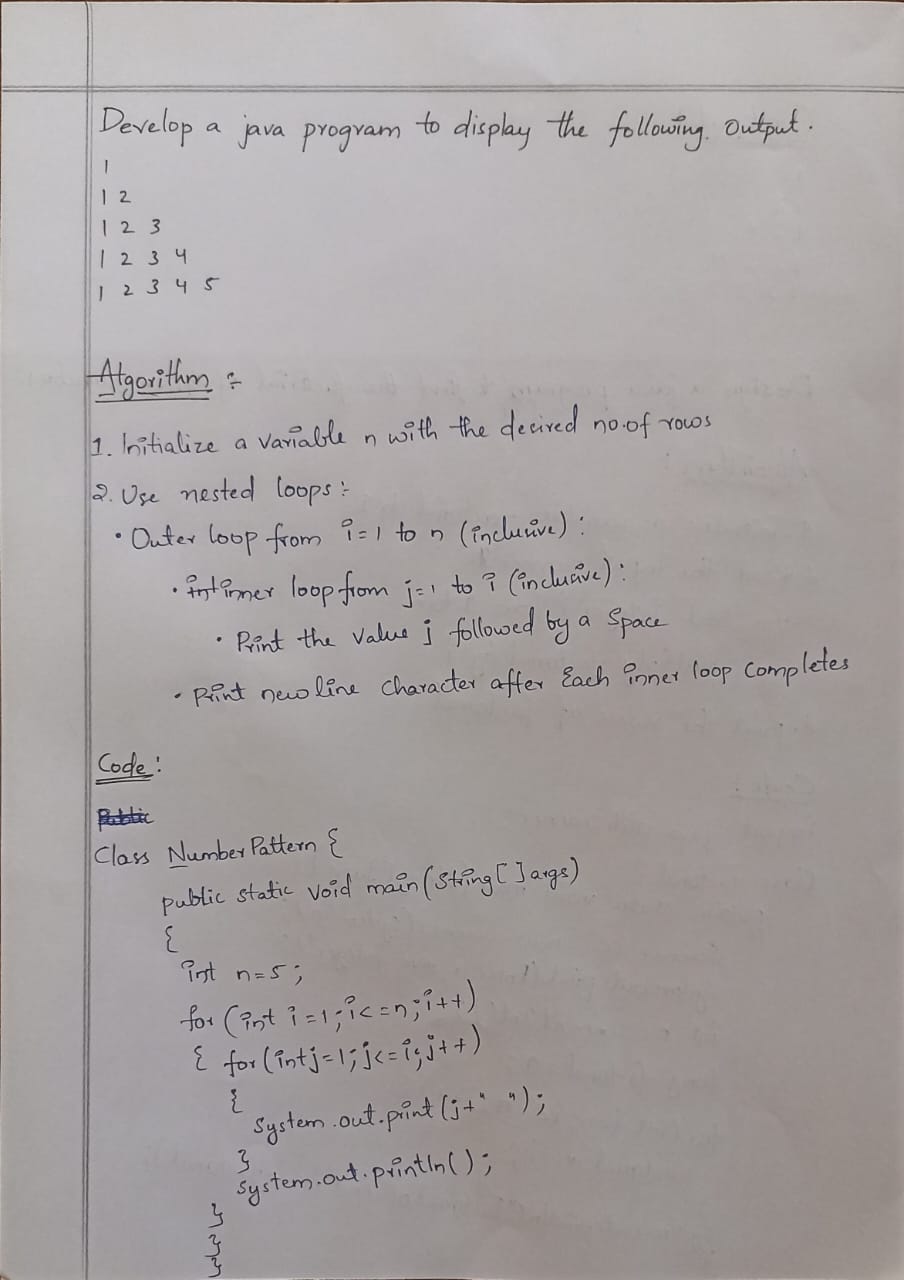 Develop a java program to display the following. Output.
1
1 2
1 2 3
1 2 3 4
1 2 3 4 5
Algorithm :-
1. Initialize a variable n with the desired no.of rows
2. Use nested loops :-
• Outer loop from i=1 to n (inclusive) :
• inner loop from j=1 to i (inclusive) :
• Print the value j followed by a space
• print new line character after Each inner loop completes
Code :
Public
Class NumberPattern {
public static void main(String[]args)
{
int n=5;
for (int i=1;i<=n;i++)
{ for(intj=1;j<=i;j++)
{
System.out.print(j+" ");
}
System.out.println();
}
}
}